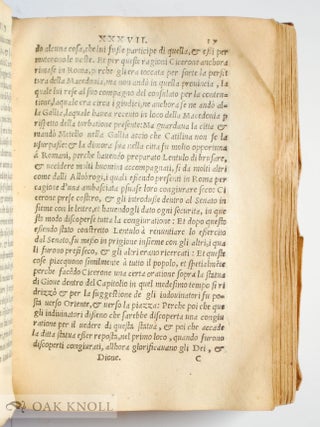 XXXVII. 17
do alcuna cosa, che lui fosse participe di quella, & essi per
muterono le
sorte. Et per queste ragioni Cicerone anchora
rimase in Roma, perche gli era toccata per sorte la
de la Macedonia ma non andò in quella provincia, la
quale lui rese al suo compagno del consolato per la
Gallia, laquale haveva preso in loco de la Macedonia p
rispetto de la turbatione presente: Ma guardana la città &
mandò Metello nella Gallia acciò che Catilina non se la
usurpasse: & la dimora sua nella città fu molto opportuna
à Romani, perche havendo preparato Lentulo di brusare,
& uccidere molti huomini accompagnati, si da molti altri
come dalli Allobrogi, i quali essendo presenti in Roma per
cagione d'una ambasciata
loro congiurare seco: Ci
cerone prese costoro, & gli introdusse dentro al Senato in
sieme con le lettere, et havendogli dato ogni securità, in que
sto modo discoperse tutta la congiuratione: Et dopo questo
essendo stato constretto Lentulo à renuntiare lo essercito
dal Senato, fu messo in prigione insieme con gli altri, i qua
li furono presi seco, & gli altri erano ricercati: Et queste
cose piacquono similmente à tutto il popolo, et spetialmẽte
perche facẽdo Cicerone una certa oratione sopra la statua
di Giove dentro del Capitolio in quel medesimo tempo si
drizzò & per la suggestione de gli indovinatori fu po
sta verso Oriente, & verso la piazza: Perche poi che que
gli indivinatori disseno che sarebbe discoperta una congiu
ratione per il vedere di questa statua, & poi che accade
la ditta esser reposta, nel primo loco, quando furono
discoperti congiurati, allhora glorificavano gli Dei, &
Dione. C
OAK KNOLL